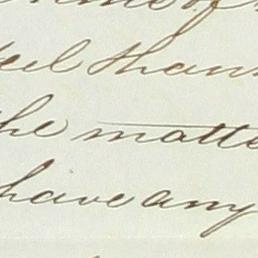 eel than
the matte
have any